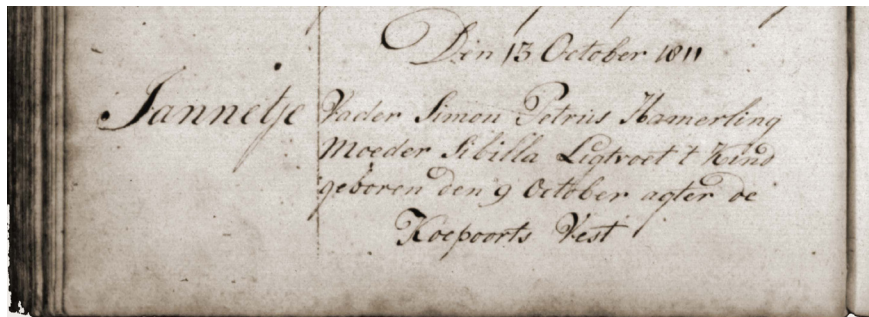 Den 13 October 1811
Jannetje Vader Simon Petrus Hamerling
Moeder Sibilla Ligtvoet t Kind
geboren den 9 October agter de
Koepoorts Vest